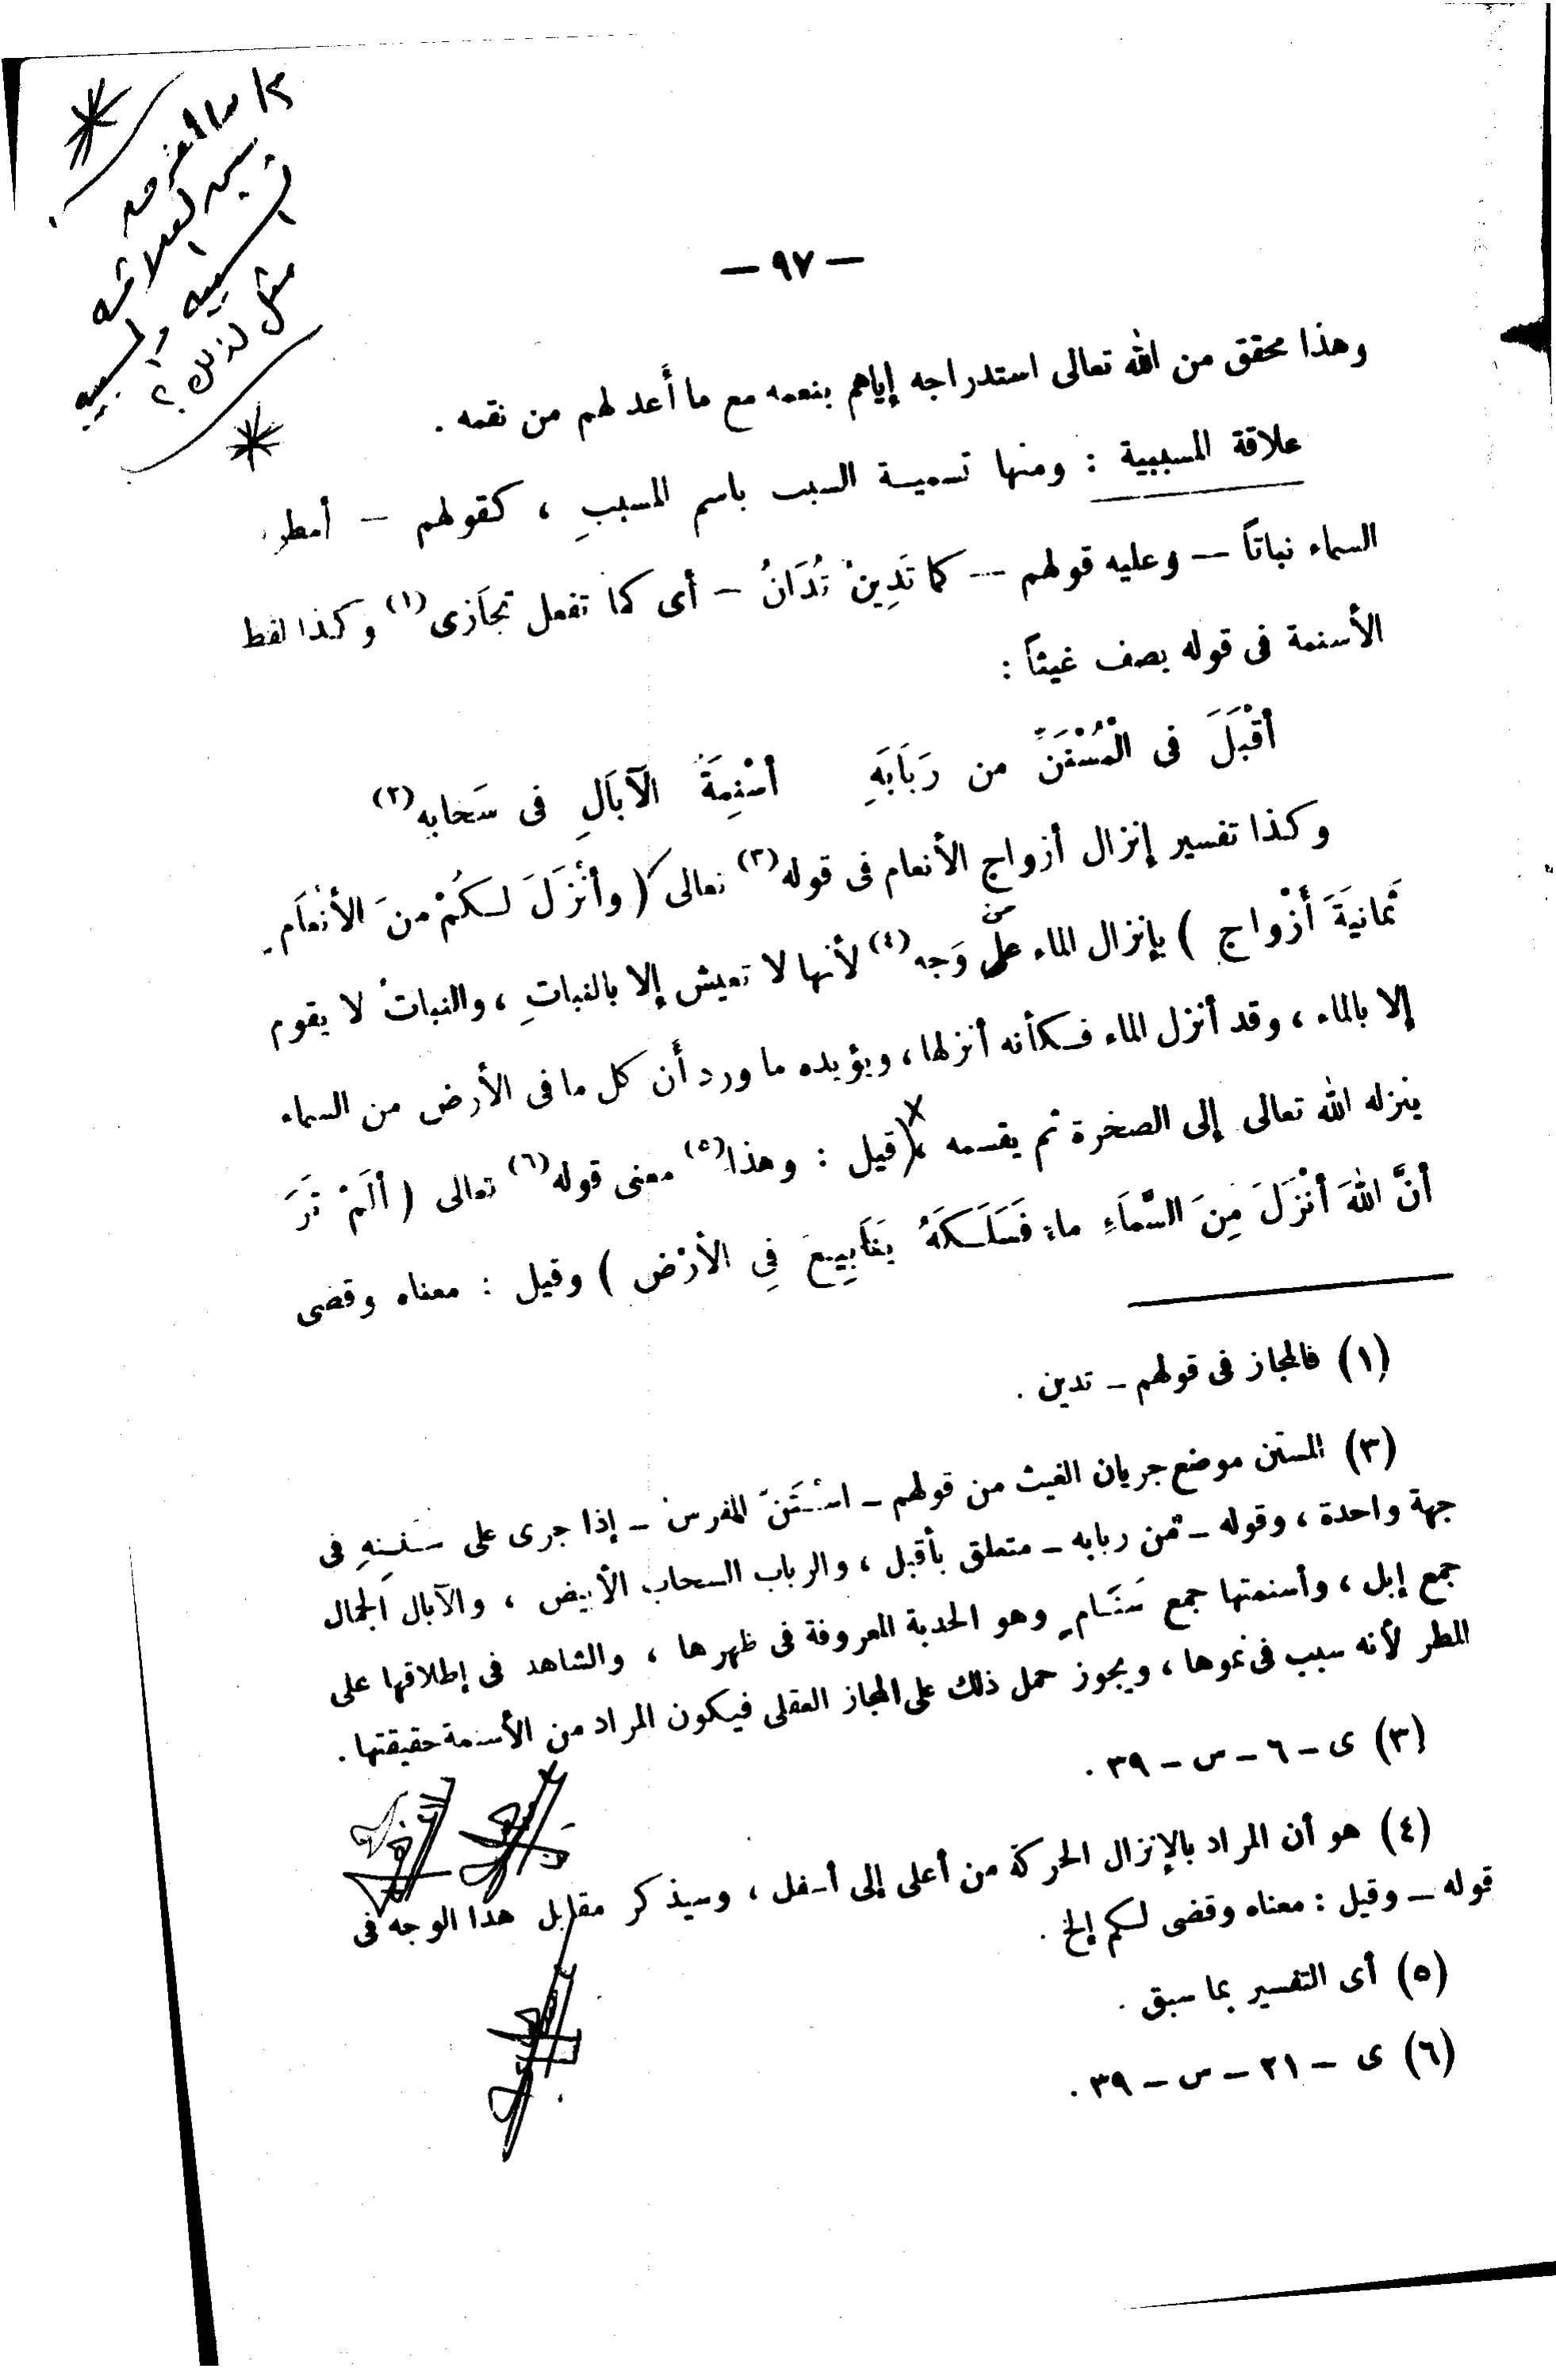 ما الفرق
بين العلاقة
السببية والمسببية
مثل لذلك؟
— ٩٧ —
وهذا محقق من الله تعالى استدراجه إياهم بنعمه مع ما أَعد لهم من نقمه .
علاقة المسببية : ومنها تسمية السبب باسم المسببِ ، كقولهم — أمطر
السماء نباتاً — وعليه قولهم — كما تَدِينُ تُدَانُ — أى كما تفعل تجَازى (١) وكذا لفظ
الأسنمة فى قوله يصف غيثاً :
أقْبَلَ فى الْمُسْتَنِّ من رَبَابَهِ أسْنِمَةُ الآبَالِ فى سَحابه (٢)
وكذا تفسير إنزال أزواج الأنعام فى قوله (٣) تعالى ( وأنْزَلَ لكُمْ منَ الأنْعَام
ثَمانيَةَ أَزْواج ) بإنزال الماء على وَجه (٤) لأنها لا تعيش إلا بالنباتِ ، والنباتُ لا يقوم
إلا بالماء ، وقد أنزل الماء فكأنه أنزلها ، ويؤيده ما ورد أَن كل ما فى الأرض من السماء
ينزله الله تعالى إلى الصخرة ثم يقسمه ، قيل : وهذا (٥) معنى قوله (٦) تعالى ( ألَمْ تَرَ
أنَّ اللهَ أنْزَلَ مِنَ السَّمَاءِ ماءً فَسَلَكَهُ يَنَابِيعَ فِي الأرْض ) وقيل : معناه وقضى
(١) فالمجاز فى قولهم — تدين .
(٣) المستن موضع جريان الغيث من قولهم — اسْتَنَّ الفرس — إذا جرى على سَنَنِهِ فى
جهة واحدة ، وقوله — من ربابه — متعلق بأقبل ، والرباب السحاب الأبيض ، والآبال الجمال
جمع إبل ، وأسنمتها جمع سَنَام وهو الحدبة المعروفة فى ظهرها ، والشاهد فى إطلاقها على
المطر لأنه سبب فى نموها ، ويجوز حمل ذلك على المجاز العقلى فيكون المراد من الأسنمة حقيقتها .
(٣) ى — ٦ — س — ٣٩ .
(٤) هو أن المراد بالإنزال الحركة من أعلى إلى أسفل ، وسيذكر مقابل هذا الوجه فى
قوله — وقيل : معناه وقضى لكم إلخ .
(٥) أى التفسير بما سبق .
(٦) ى — ٢١ — س — ٣٩ .